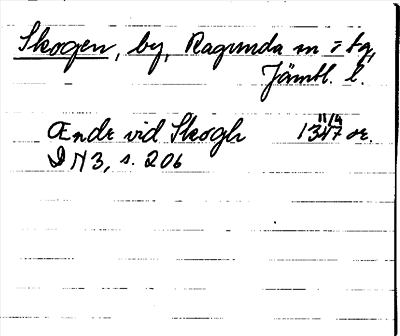 Skogen, by, Ragunda sn o tg,
Jämtl. l.
Ænde vid Skogh 11/4 1347 or.
DN 3, s. 206